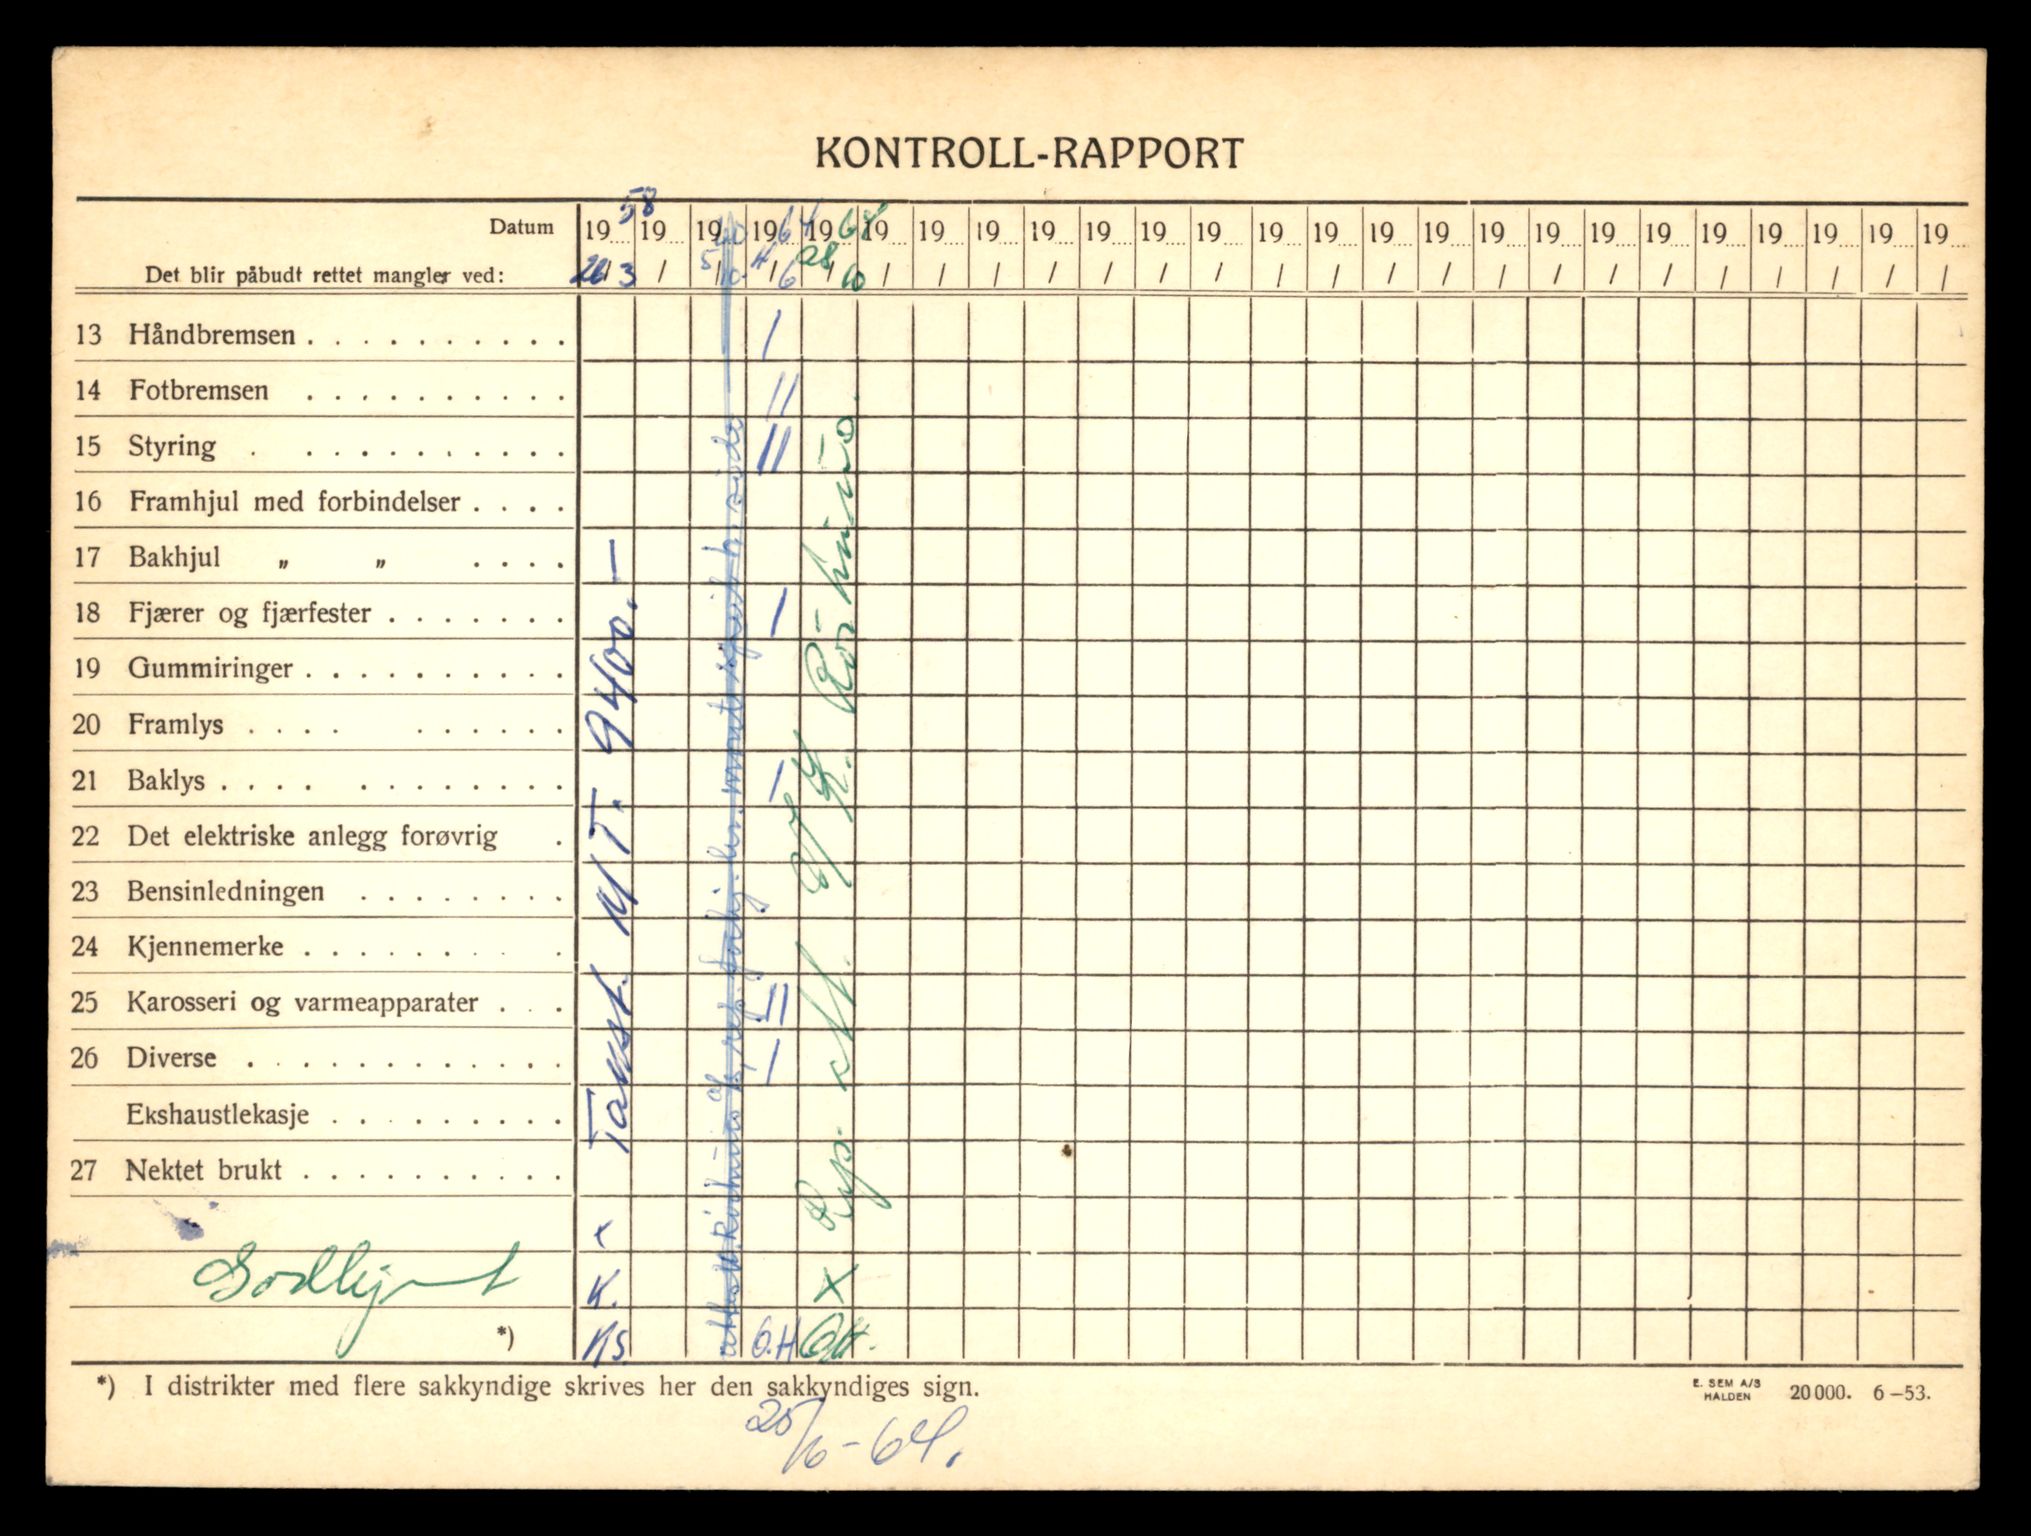 KONTROLL-RAPPORT
Datum 1958 19 1960 1964 1968 19 19 19 19 19 19 19 19 19 19 19 19 19 19 19 19 19 19 19 19
Det blir påbudt rettet mangler ved: 26/3 / 5/10 4/6 28/10 / / / / / / / / / / / / / / / / / / / /
13 Håndbremsen . . . . . . . . . . /
14 Fotbremsen . . . . . . . . . . //
15 Styring . . . . . . . . . . . //
16 Framhjul med forbindelser . . . .
17 Bakhjul „ „ . . . .
18 Fjærer og fjærfester . . . . . . . /
19 Gummiringer . . . . . . . . . .
20 Framlys . . . . . . . . . .
21 Baklys . . . . . . . . . . . . /
22 Det elektriske anlegg forøvrig .
23 Bensinledningen . . . . . . . .
24 Kjennemerke . . . . . . . . .
25 Karosseri og varmeapparater . . . //
26 Diverse . . . . . . . . . . . . /
Ekshaustlekasje . . . . . . . . .
27 Nektet brukt . . . . . . . . . .
Takst. M/T. 9400.-
h. side
Rep. att. O/K.
x
Godkjent K. X
*) NS O.H O.H.
*) I distrikter med flere sakkyndige skrives her den sakkyndiges sign.
E. SEM A/S
HALDEN 20 000. 6-53.
25/6-64.